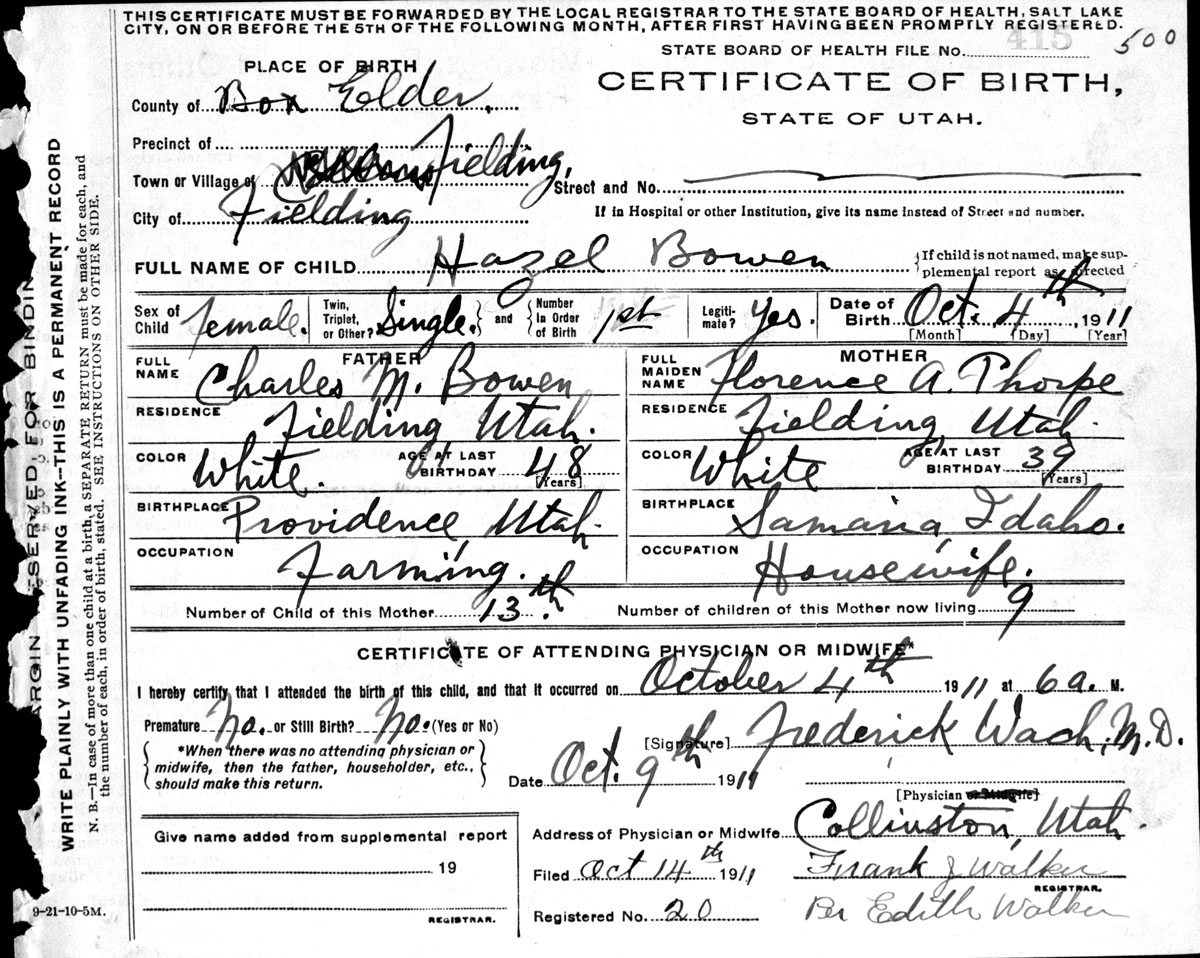 THIS CERTIFICATE MUST BE FORWARDED BY THE LOCAL REGISTRAR TO THE STATE BOARD OF HEALTH, SALT LAKE
CITY, ON OR BEFORE THE 5TH OF THE FOLLOWING MONTH, AFTER FIRST HAVING BEEN PROMPTLY REGISTERED.
STATE BOARD OF HEALTH FILE No. 415 500
PLACE OF BIRTH
CERTIFICATE OF BIRTH,
STATE OF UTAH.
County of Box Elder.
Precinct of
Town or Village of Fielding, Street and No.
City of Fielding If in Hospital or other Institution, give its name instead of Street and number.
FULL NAME OF CHILD Hazel Bowen {If child is not named, make sup-
plemental report as directed
Sex of Child female. Twin, Triplet, or Other? Single. } and { Number in Order of Birth 1st Legiti-mate? Yes. Date of Birth Oct. 4th, 1911
[Month] [Day] [Year]
FATHER MOTHER
FULL NAME Charles M. Bowen FULL MAIDEN NAME Florence A. Thorpe
RESIDENCE Fielding, Utah. RESIDENCE Fielding, Utah.
COLOR White. AGE AT LAST BIRTHDAY 48 [Years] COLOR White AGE AT LAST BIRTHDAY 39 [Years]
BIRTHPLACE Providence, Utah. BIRTHPLACE Samaria, Idaho.
OCCUPATION Farming. OCCUPATION Housewife.
Number of Child of this Mother 13th. Number of children of this Mother now living 9
CERTIFICATE OF ATTENDING PHYSICIAN OR MIDWIFE*
I hereby certify that I attended the birth of this child, and that it occurred on October 4th 1911 at 6 a. M.
Premature No. or Still Birth? No. (Yes or No)
[Signature] Frederick Wach, M.D.
{*When there was no attending physician or
midwife, then the father, householder, etc.,
should make this return.}
Date Oct. 9th 1911
[Physician or Midwife]
Give name added from supplemental report
19
REGISTRAR.
Address of Physician or Midwife Collinston, Utah.
Filed Oct 14th 1911 Frank J Walker
REGISTRAR.
Registered No. 20 Per Edith Walker
9-21-10-5M.
ARGIN RESERVED FOR BINDIN
WRITE PLAINLY WITH UNFADING INK—THIS IS A PERMANENT RECORD
N. B.—In case of more than one child at a birth, a SEPARATE RETURN must be made for each, and
the number of each, in order of birth, stated. SEE INSTRUCTIONS ON OTHER SIDE.